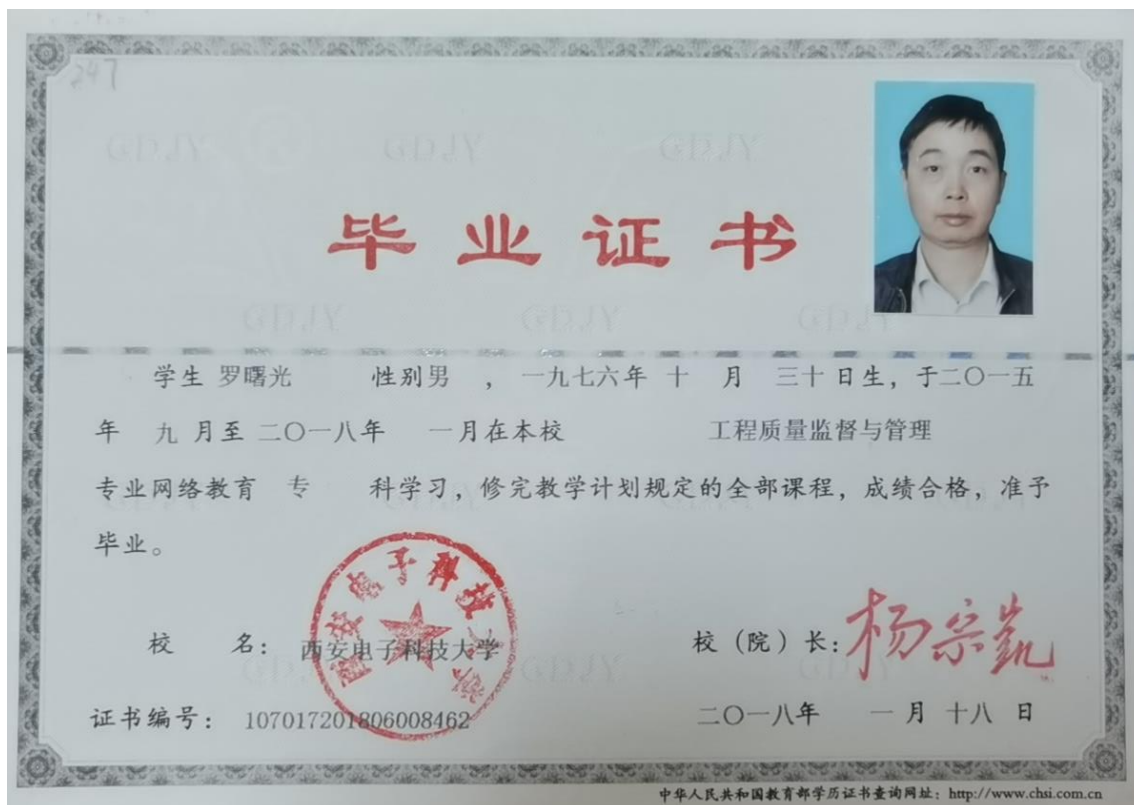 247
GDJY GDJY GDJY
毕业证书
GDJY GDJY GDJY
学生 罗曙光 性别男 ，一九七六年 十 月 三十日生，于二〇一五
年 九 月至 二〇一八年 一月在本校 工程质量监督与管理
专业网络教育 专 科学习，修完教学计划规定的全部课程，成绩合格，准予
毕业。
西安电子科技大学
校 名： 西安电子科技大学 校（院）长：杨宗凯
证书编号： 107017201806008462 二〇一八年 一月 十八 日
中华人民共和国教育部学历证书查询网址：http://www.chsi.com.cn